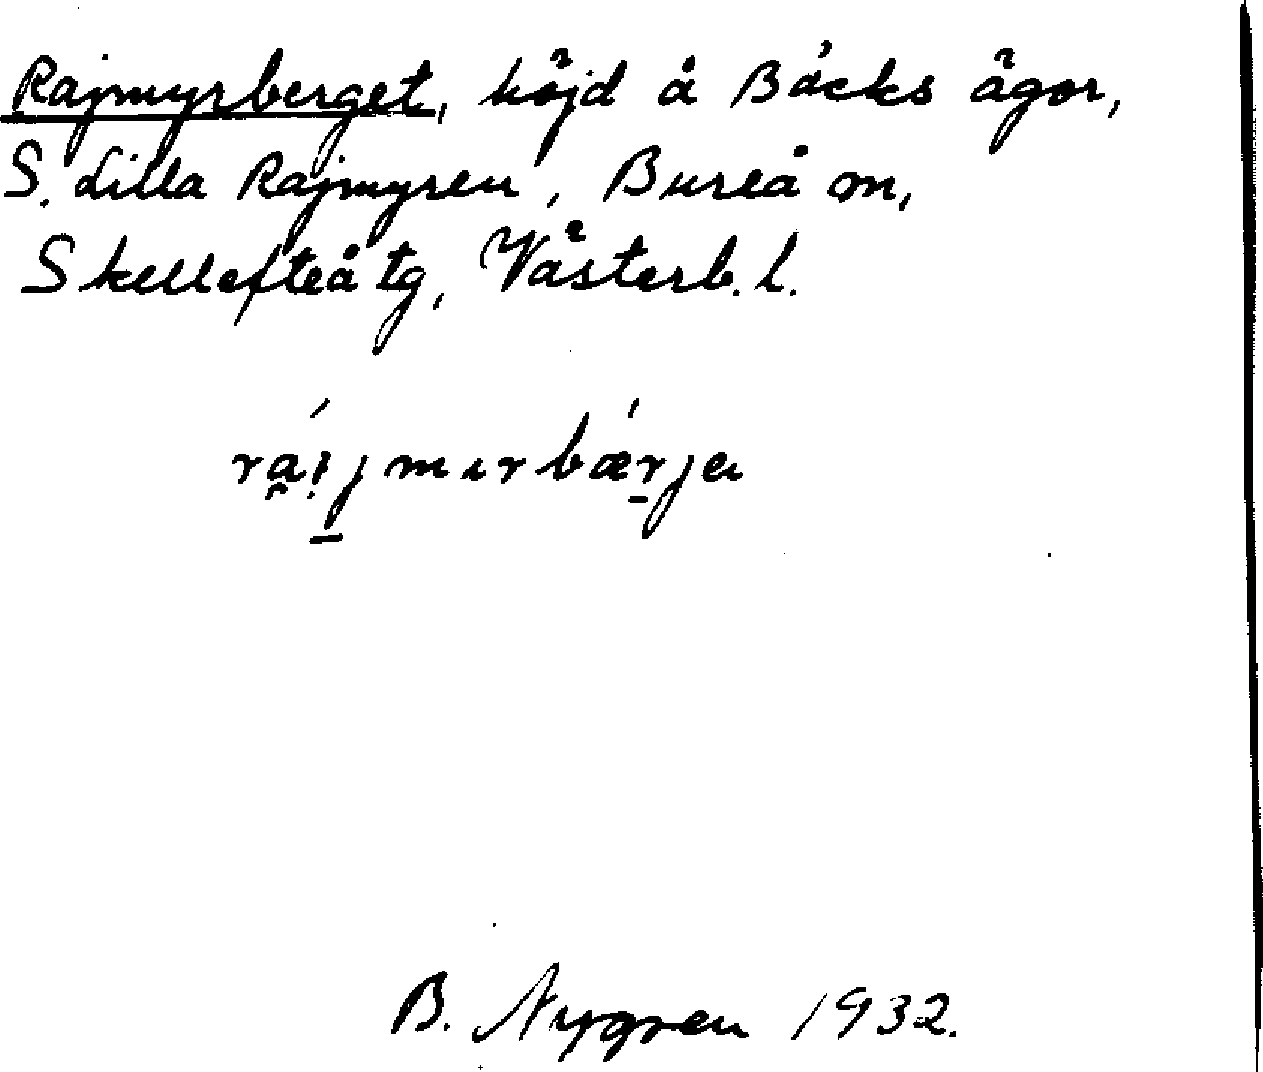 Rajmyrberget, höjd å Bäcks ägor,
S. Lilla Rajmyren, Bureå sn,
Skellefteå tg, Västerb. l.
B. Nygren 1932.